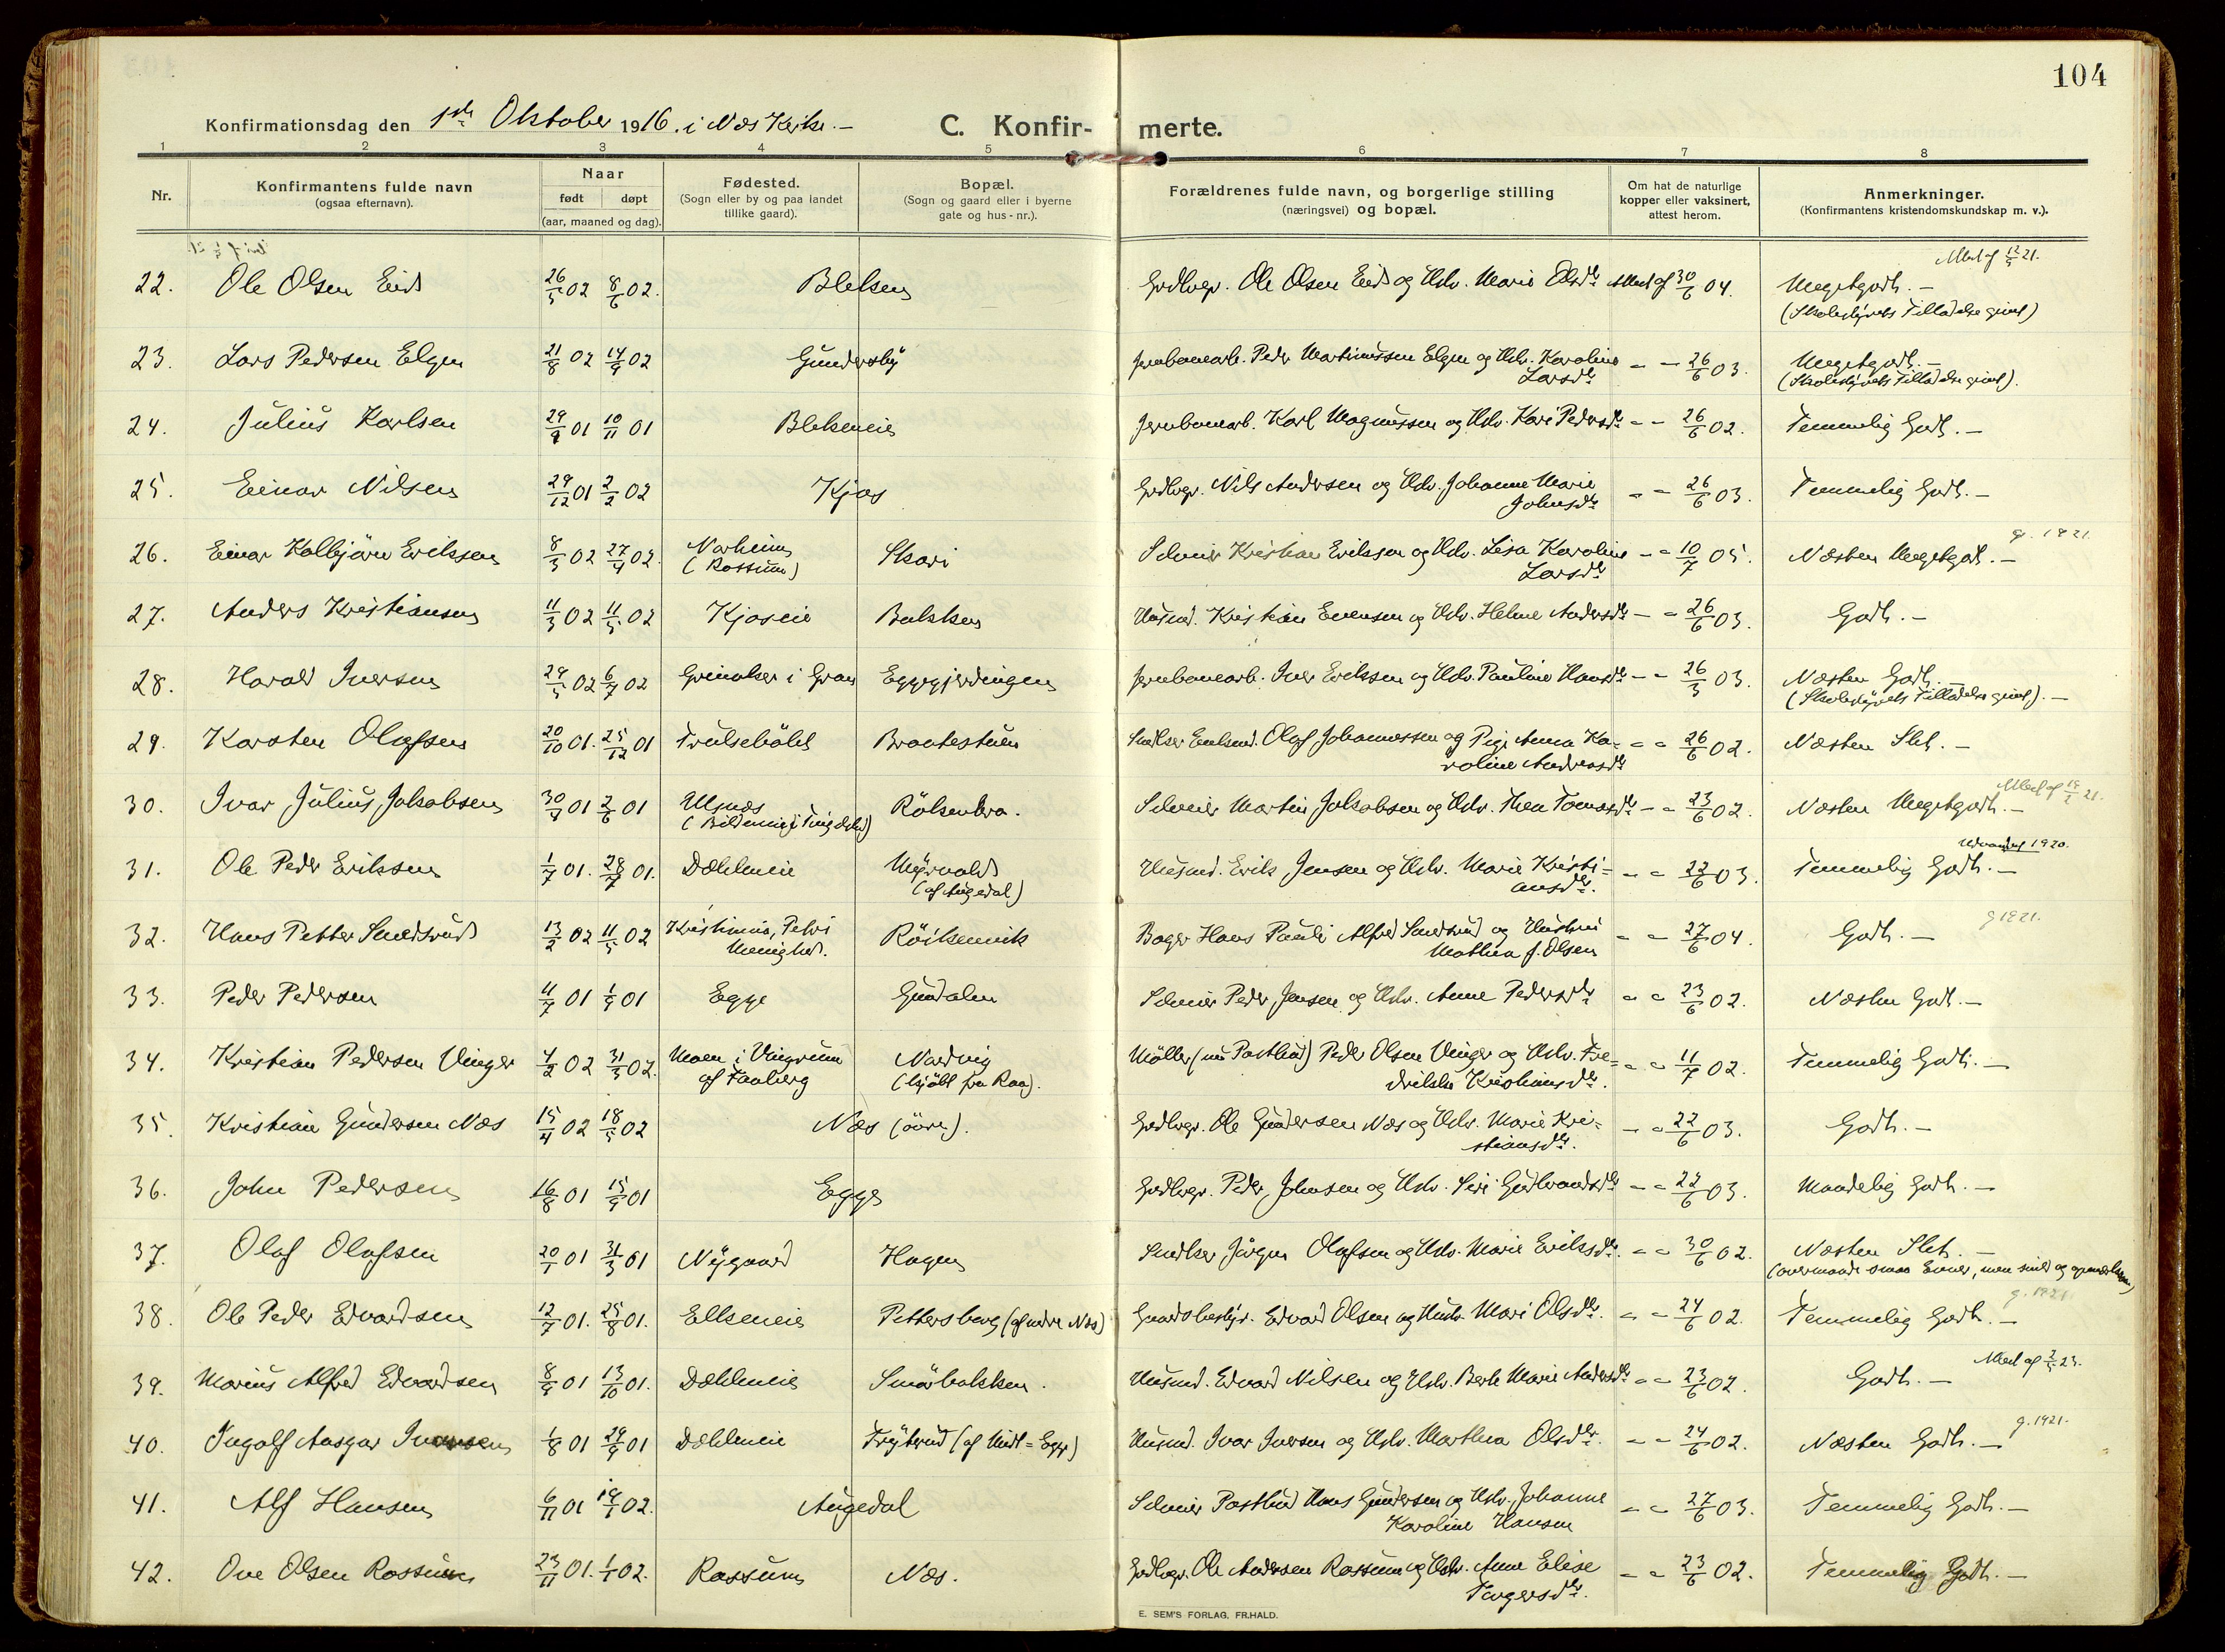 104
Konfirmationsdag den 1ste Oktober 1916. i Næs Kirke. —
C. Konfir- merte.
1 2 3 4 5 6 7 8
Nr.
Konfirmantens fulde navn
(ogsaa efternavn).
Naar
født døpt
(aar, maaned og dag).
Fødested.
(Sogn eller by og paa landet
tillike gaard).
Bopæl.
(Sogn og gaard eller i byerne
gate og hus-nr.).
Forældrenes fulde navn, og borgerlige stilling
(næringsvei) og bopæl.
Om hat de naturlige
kopper eller vaksinert,
attest herom.
Anmerkninger.
(Konfirmantens kristendomskundskap m. v.).
22. Ole Olsen Eid 26/5 02 8/6 02. Bleken Grdbrgr. Ole Olsen Eid og Hstr. Marie Olsdr Attest af 30/6 04. Megetgodt. —
(Skolestyrets Tilladelse givet)
23. Lars Pedersen Elgen 21/8 02 14/9 02 Gundersby Jernbanearb. Peder Martinussen Elgen og Hstr. Karoline Larsdr — — 26/6 03. Megetgodt. —
(Skolestyrets Tilladelse givet).
24. Julius Karlsen 29/9 01 10/11 01 Blekeneie Jernbanearb. Karl Magnussen og Hstr. Kari Pedersdr — — 26/6 02. Temmelig Godt. —
25. Einar Nilsen 29/12 01 2/2 02 Kjos Grdbrgr. Nils Andersen og Hstr. Johanne Marie Johnsdr — — 26/6 03. Temmelig Godt. —
26. Einar Kolbjörn Eriksen 8/3 02 27/4 02. Norheim
(Rossum) Skari Selveier Kristian Eriksen og Hstr. Lisa Karoline Larsdr — — 10/7 05. Næsten Megetgodt. —
g. 1921.
27. Anders Kristiansen 11/3 02 11/5 02 Kjoseie Bakken Husmd. Kristian Evensen og Hstr. Helene Andersdr — — 26/6 03. Godt. —
28. Harald Iversen 29/5 02 6/7 02 Grinaker i Gran Eggegjerdingen Jernbanearb. Iver Eriksen og Hstr. Pauline Hansdr — — 26/3 03. Næsten Godt. —
(Skolestyrets Tilladelse givet). —
29. Karsten Olafsen 20/10 01. 25/12 01 Trulsebölet Braatestuen Snedker Olaf Johannessen og Pige Anna Karoline Andreasdr — — 26/6 02. Næsten Slet. —
30. Ivar Julius Jakobsen 30/4 01 2/6 01 Ulnæs Rölsenbra. Selveier Martin Jakobsen og Hstr. Thea Tomasdr — — 23/6 02. Næsten Megetgodt. —
31. Ole Peder Eriksen 1/7 01. 28/7 01. Dæhleneie Myrvold
(af Augedal) Husmd. Erik Jensen og Hstr. Marie Kristi=
ansdr. — — 22/6 03. Temmelig Godt. —
Udvandret 1920.
32. Hans Petter Smedsrud 13/2 02 11/5 02 Kristiania, Petri
Menighed. Röikenvik Bager Hans Pauli Alfred Smedsrud og Hustru
Mathea f. Olsen — — 27/6 04. Godt. —
g 1921.
33. Peder Pedersen 11/7 01 1/9 01 Egge Gundalen Selveier Peder Jensen og Hstr. Anne Pedersdr — — 23/6 02. Næsten Godt. —
34. Kristian Pedersen Vinger 4/2 02 31/3 02. Moen i Vingrum
af Faaberg Nordvig
(kjöbt fra Raa). Möller (nu Postbud) Peder Olsen Vinger og Hstr. Fre=
drikke Kristiansdr. — — 11/7 02. Temmelig Godt. —
35. Kristian Gundersen Næs 15/4 02 18/5 02 Næs (övre). Grdbrgr. Ole Gundersen Næs og Hstr. Marie Kri=
stiansdr. — — 22/6 03. Godt. —
36. John Pedersen 16/8 01 15/9 01 Egge Grdbrgr. Peder Johnsen og Hstr. Siri Gudbrandsdr — — 22/6 03. Maadelig Godt. —
37. Olaf Olafsen 20/1 01 31/3 01 Nygaard Hagen Snedker Jörgen Olafsen og Hstr. Marie Eriksdr. — — 30/6 02. Næsten Slet. —
(overmaade smaa Evner, men snild og opmærksom)
38. Ole Peder Edvardsen 12/7 01. 25/8 01. Elkeneie Pettersborg (af nedre Næs) Gaardsbestyr. Edvard Olsen og Hustr. Mari Olsdr. — — 24/6 02. Temmelig Godt. —
g. 1921
39. Marius Alfred Edvardsen 8/9 01 13/10 01. Dæhleneie Smörbakken. Husmd. Edvard Nilsen og Hstr. Berte Marie Andersdr — — 23/6 02. Godt. —
Attest af 2/5 23.
40. Ingolf Aasgar Iversen 1/8 01 29/9 01 Dæhleneie Frytrud (af Midt=Egge) Husmd. Ivar Iversen og Hstr. Marthea Olsdr. — — 24/6 02. Næsten Godt. —
g. 1921.
41. Alf Hansen 6/11 01 19/1 02. Augedal Selveier Postbud Hans Gundersen og Hstr. Johanne
Karoline Hansen — — 27/6 03. Temmelig Godt. —
42. Ove Olsen Rossum 23/11 01. 1/1 02. Rossum Næs. Grdbrgr. Ole Andersen Rossum og Hstr. Anne Elise
Torgersdr. — — 23/6 02. Temmelig Godt. —
E. SEM'S FORLAG, FR.HALD.